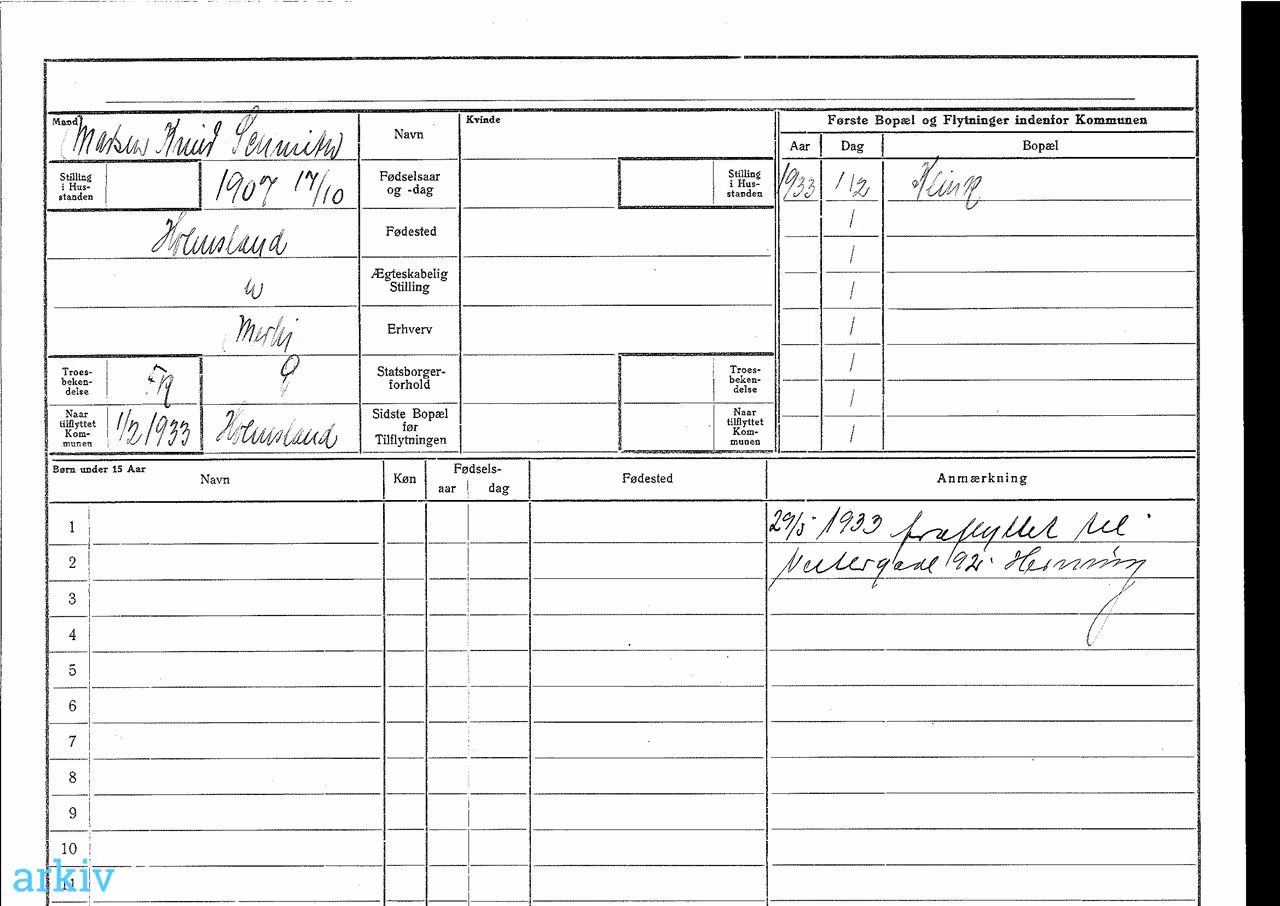 Mand
Madsen Knud
Navn
Kvinde
Første Bopæl og Flytninger indenfor Kommunen
Aar
Dag
Bopæl
Stilling
i Hus-
standen
1907 17/10
Fødselsaar
og -dag
Stilling
i Hus-
standen
1933 1/2
Holmsland
Fødested
/
/
u
Ægteskabelig
Stilling
/
Erhverv
/
Troes-
beken-
delse
Statsborger-
forhold
Troes-
beken-
delse
/
/
Naar
tilflyttet
Kom-
munen
1/2 1933
Holmsland
Sidste Bopæl
før
Tilflytningen
Naar
tilflyttet
Kom-
munen
/
Børn under 15 Aar
Navn
Køn
Fødsels-
aar
dag
Fødested
Anmærkning
1
29/5 1933 fraflyttet til
2
Vestergade 92 Herning
3
4
5
6
7
8
9
10
11
arkiv